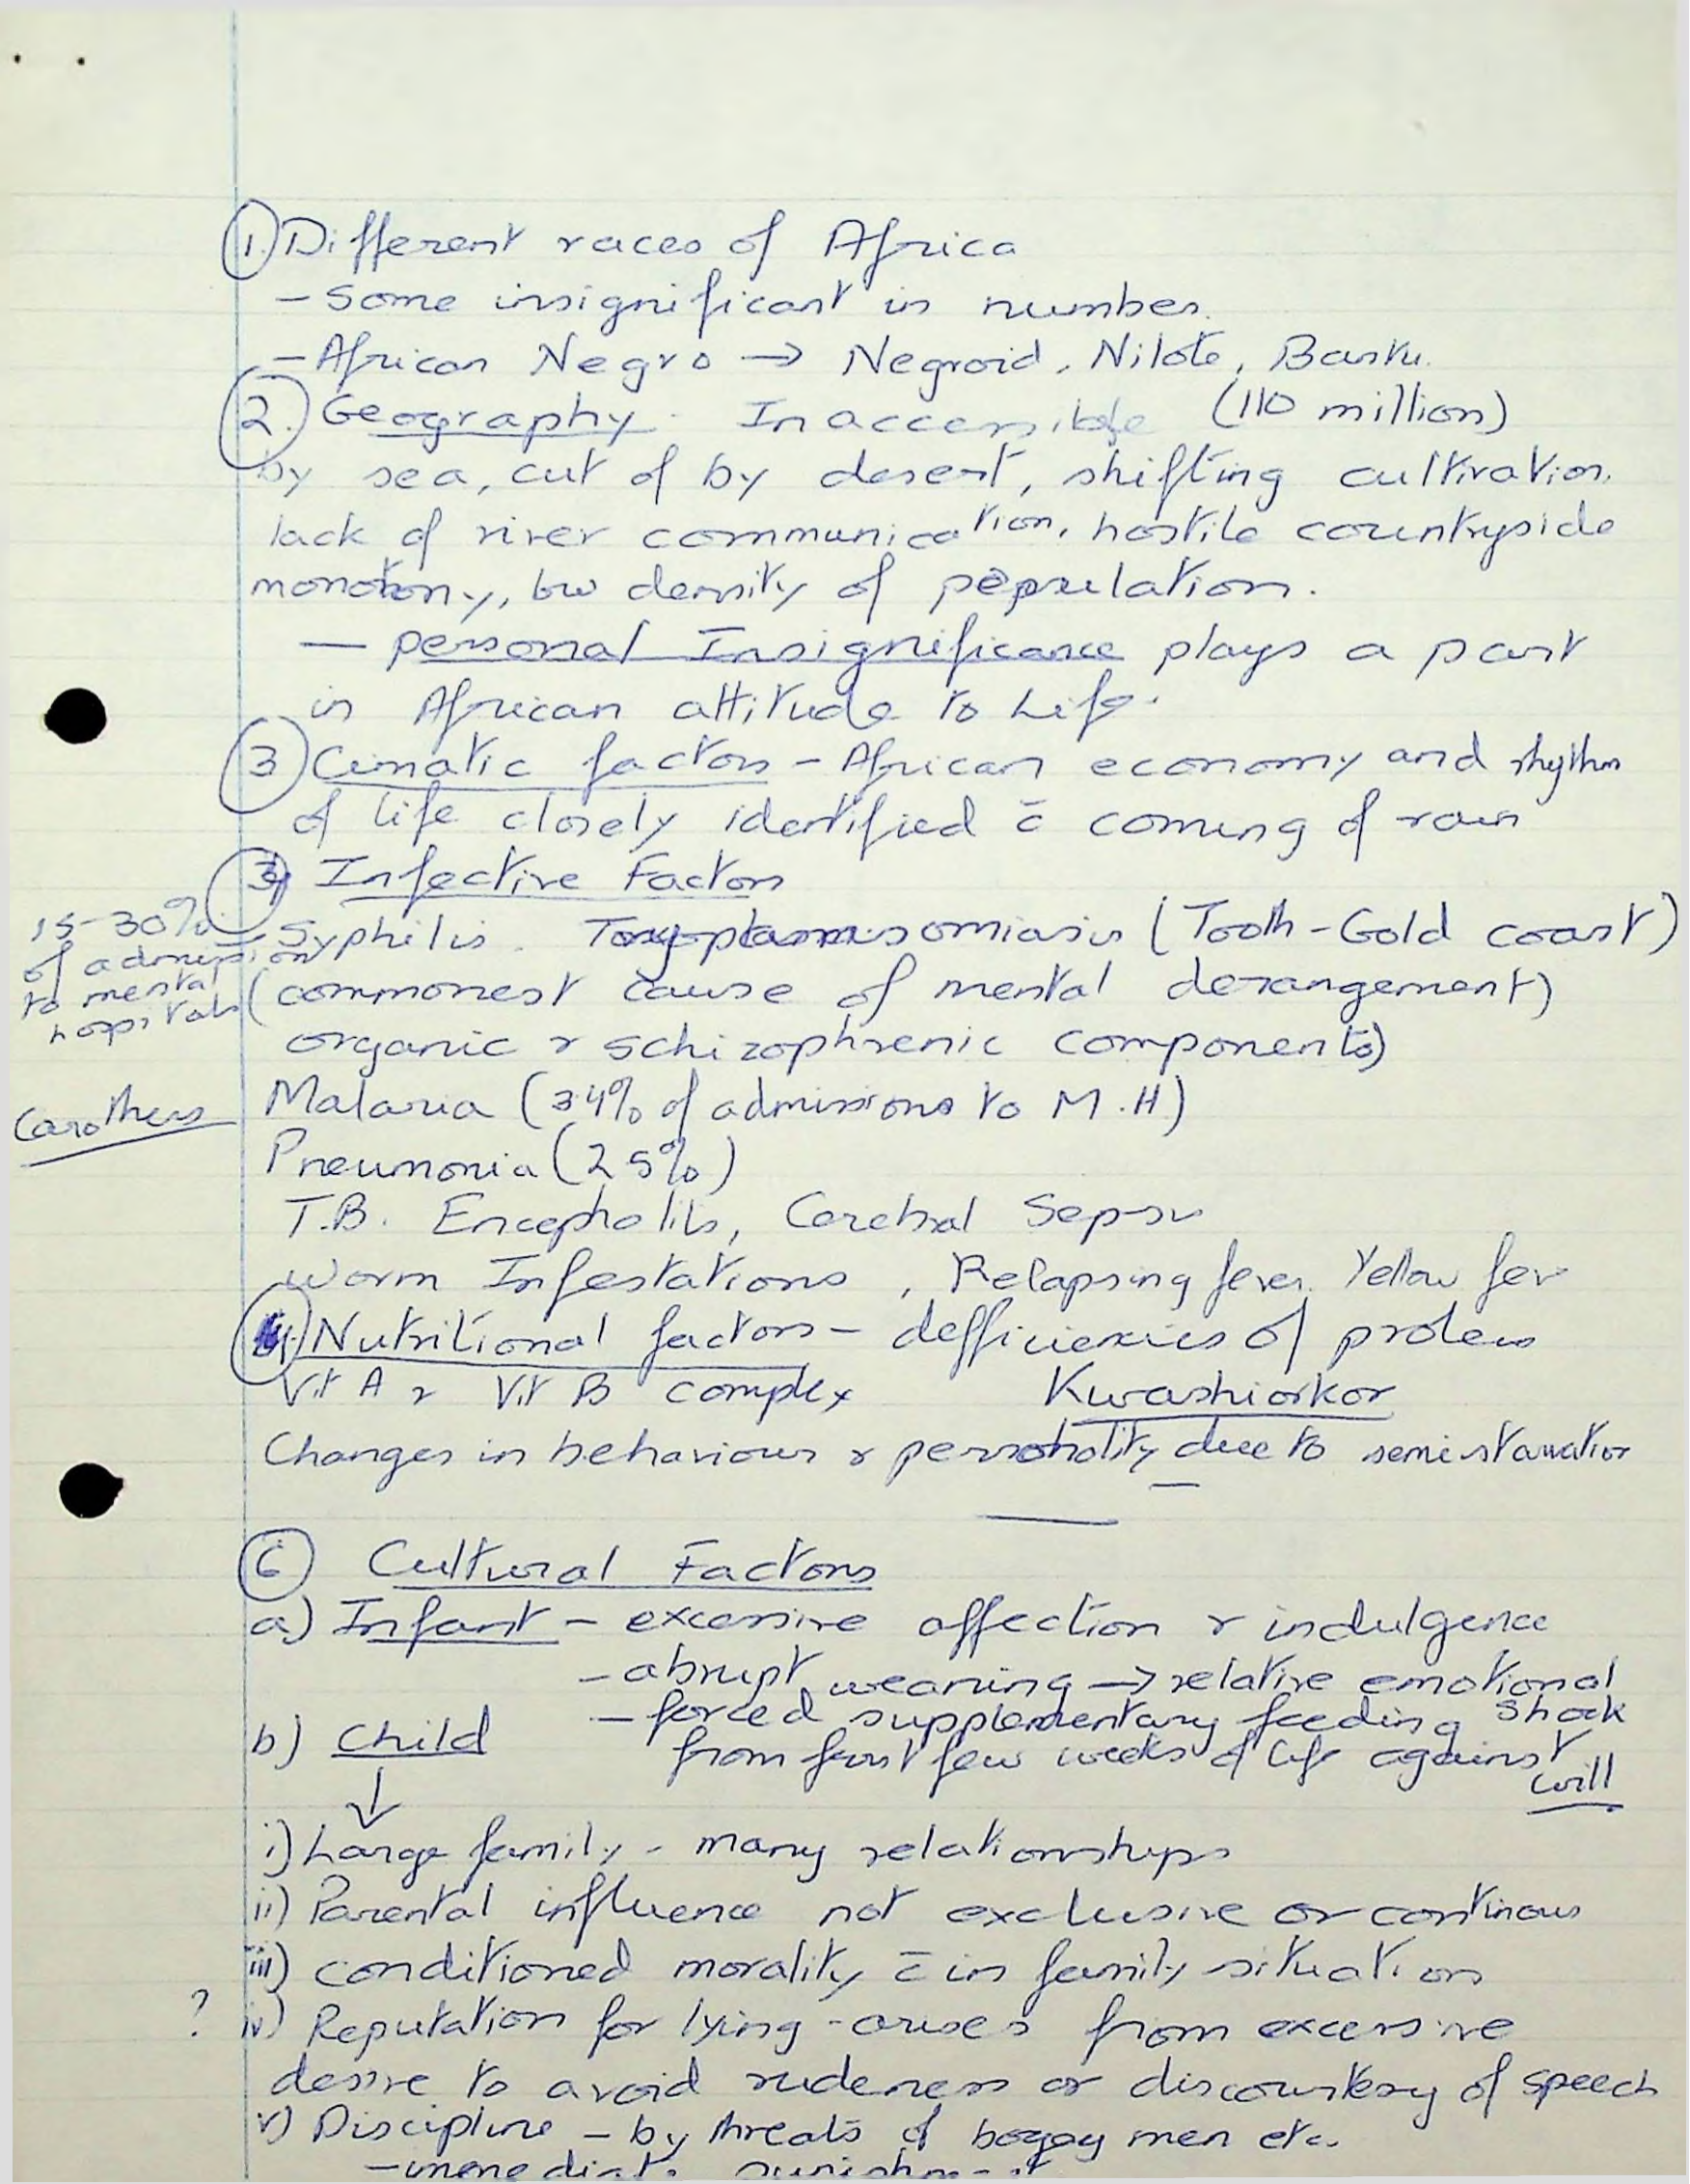 1. Different races of Africa
- Some insignificant in number.
- African Negro → Negroid, Nilote, Bantu.
2. Geography. Inaccessible (110 million)
by sea, cut of by desert, shifting cultivation,
lack of river communication, hostile countryside
monotony, low density of population.
— personal Insignificance plays a part
in African attitude to Life.
3 Cimatic factors - African economy and rhythm
of life closely identified c̄ coming of rain
Infective Factors
15-30%
of admission
to mental
hospitals
Syphilis. (Tooth - Gold coast)
(commonest cause of mental derangement)
organic & schizophrenic components)
Carothers
Malaria (34% of admissions to M.H)
Pneumonia (25%)
T.B. Encephalitis, Cerebral Sepsis
Worm Infestations, Relapsing fever, Yellow fev
Nutritional factors - defficiencies of protein
Vit A & Vit B complex Kwashiorkor
Changes in behaviour & personality due to semi starvation
6 Cultural Factors
a) Infant - excessive affection & indulgence
- abrupt weaning → relative emotional
shock
- forced supplementary feeding
from first few weeks of life against
will
b) Child
↓
i) Large family - many relationships
ii) Parental influence not exclusive or continous
iii) conditioned morality c̄ in family situation
? iv) Reputation for lying - arises from excessive
desire to avoid rudeness or discourtesy of speech
v) Discipline - by threats of bogey men etc.
- immediate punishment